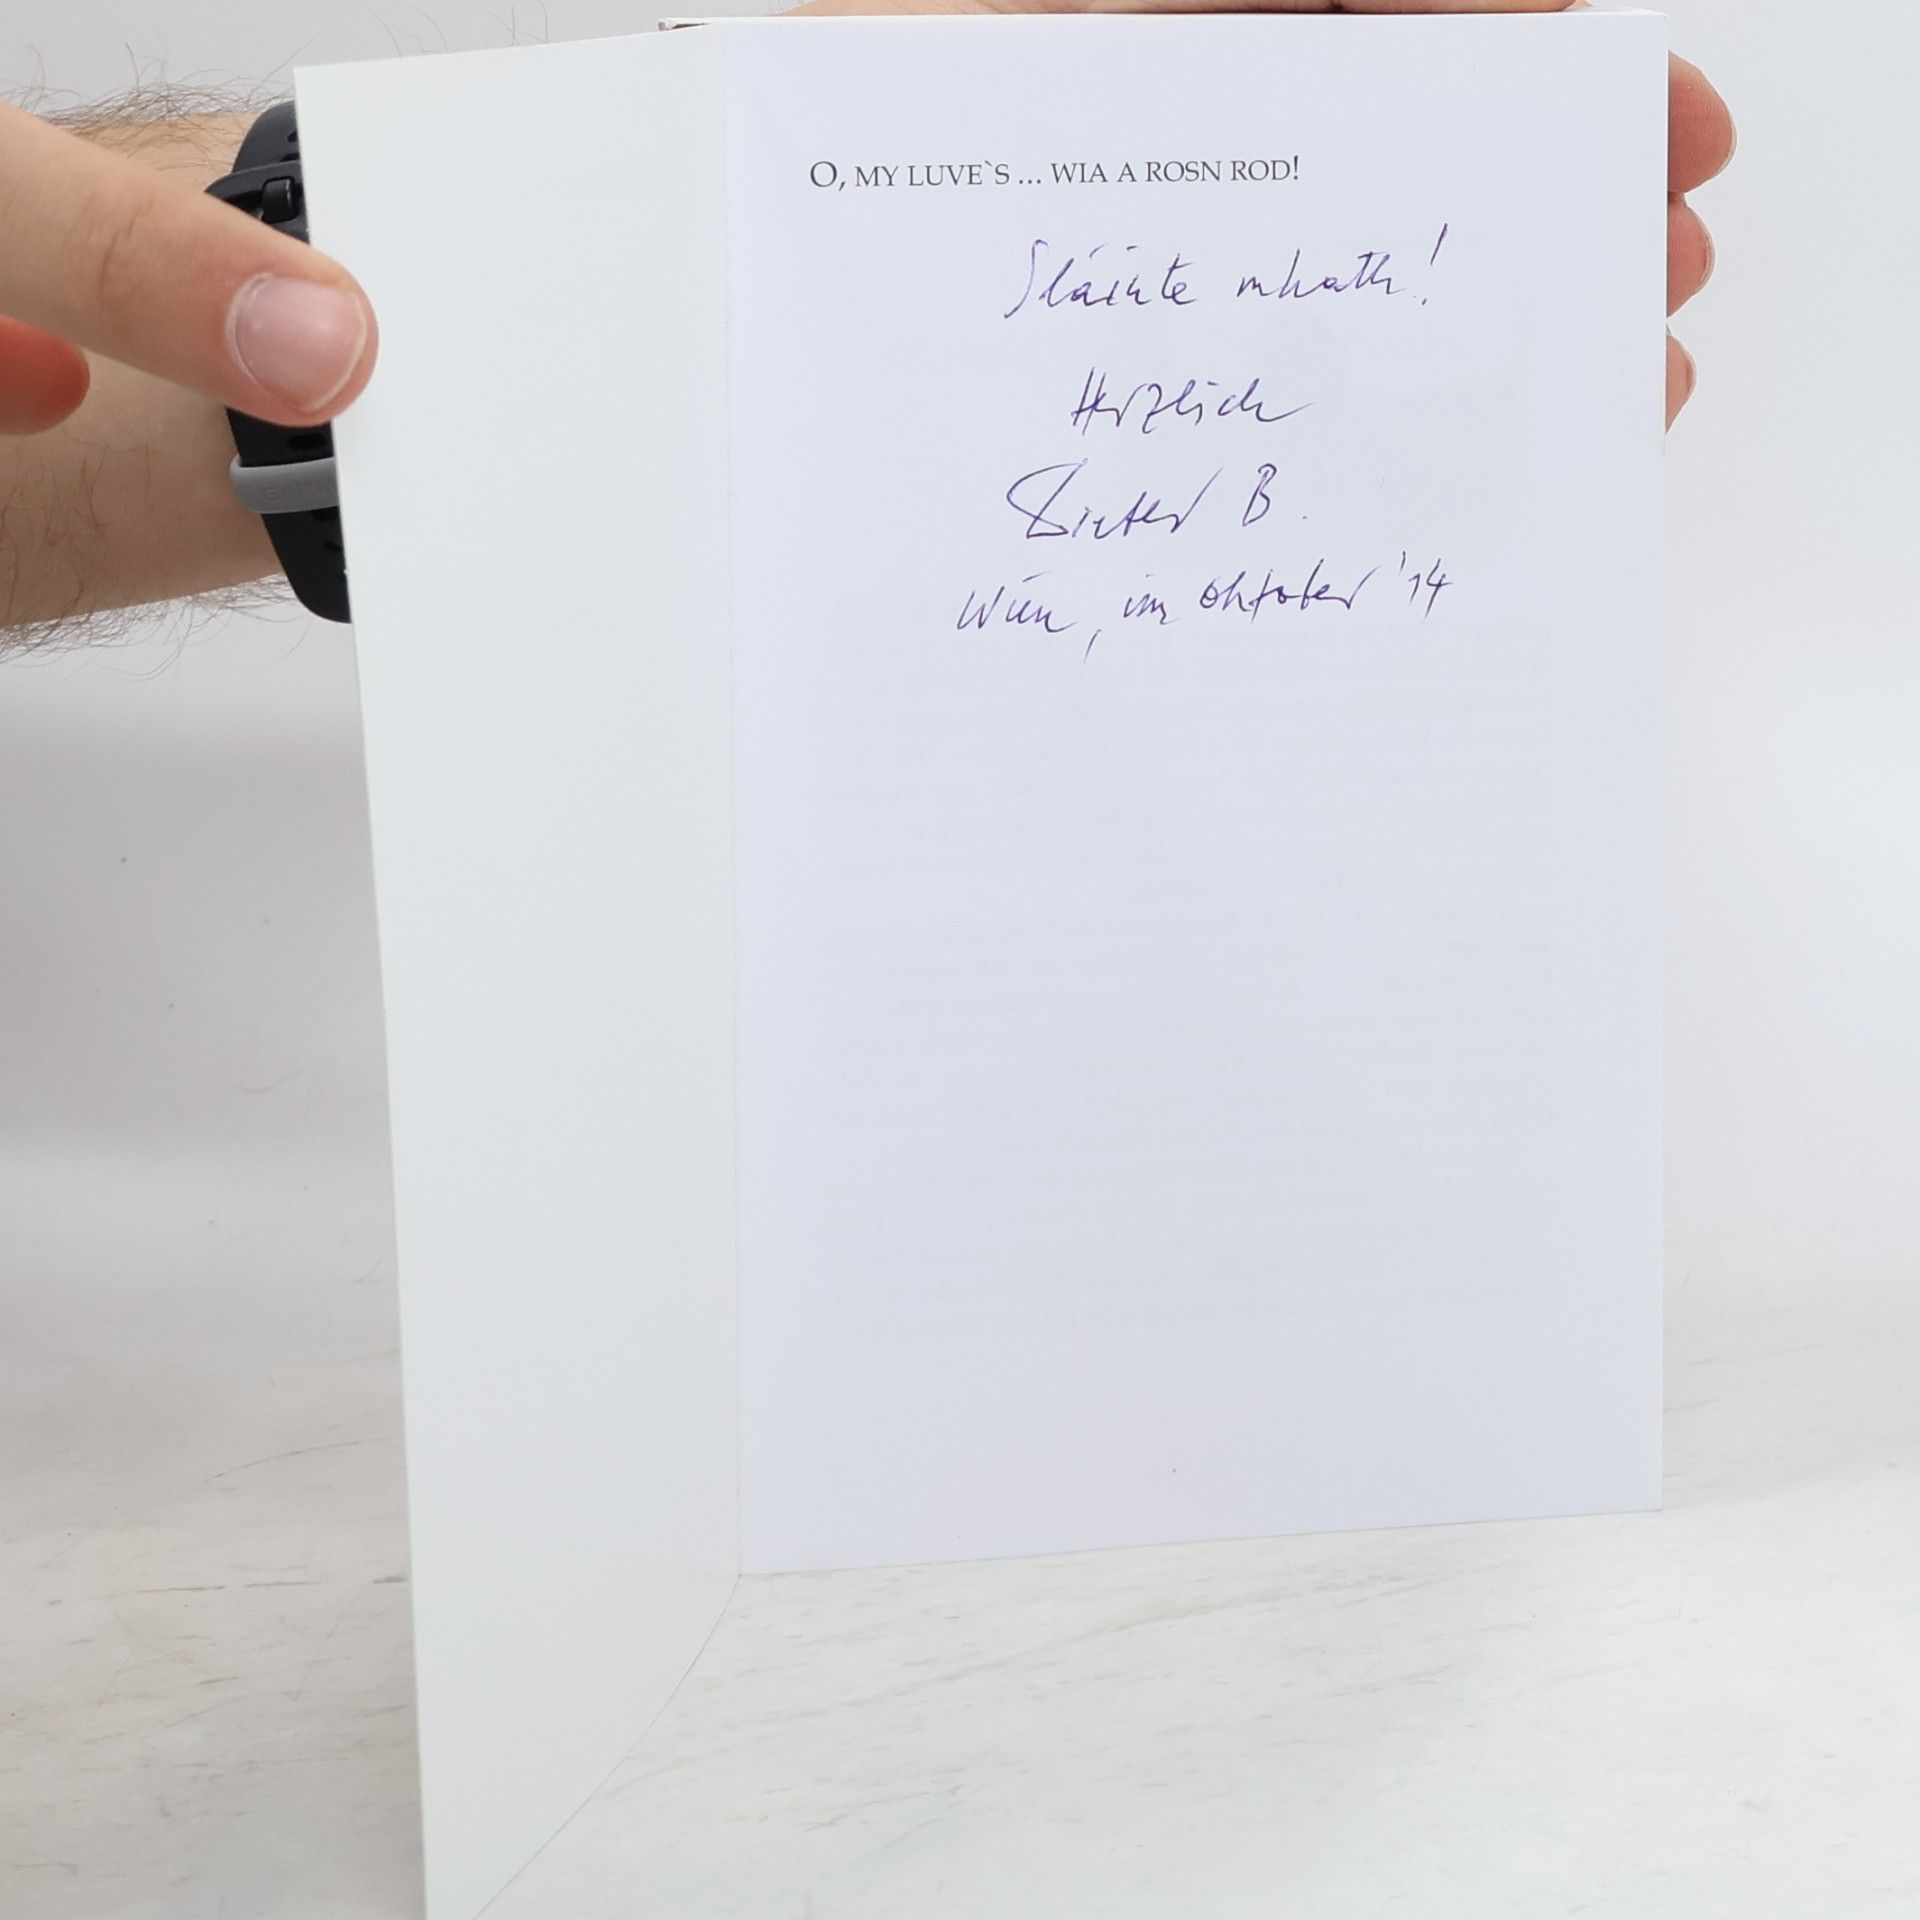 O, MY LUVE`S ... WIA A ROSN ROD!
Sláinte mhath!
Herzlich
Dieter B.
Wien, im Oktober '14